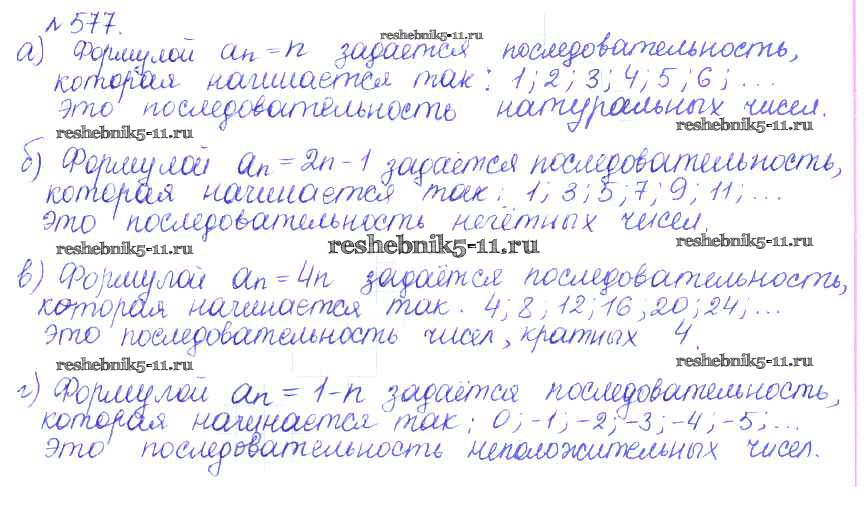 № 577.
reshebnik5-11.ru
а) Формулой an = n задаётся последовательность,
которая начинается так: 1; 2; 3; 4; 5; 6; ...
Это последовательность натуральных чисел.
reshebnik5-11.ru reshebnik5-11.ru
б) Формулой an = 2n - 1 задаётся последовательность,
которая начинается так: 1; 3; 5; 7; 9; 11; ...
Это последовательность нечётных чисел.
reshebnik5-11.ru reshebnik5-11.ru reshebnik5-11.ru
в) Формулой an = 4n задаётся последовательность,
которая начинается так. 4; 8; 12; 16; 20; 24; ...
Это последовательность чисел, кратных 4.
reshebnik5-11.ru reshebnik5-11.ru
г) Формулой an = 1-n задаётся последовательность,
которая начинается так: 0; -1; -2; -3; -4; -5; ...
Это последовательность неположительных чисел.